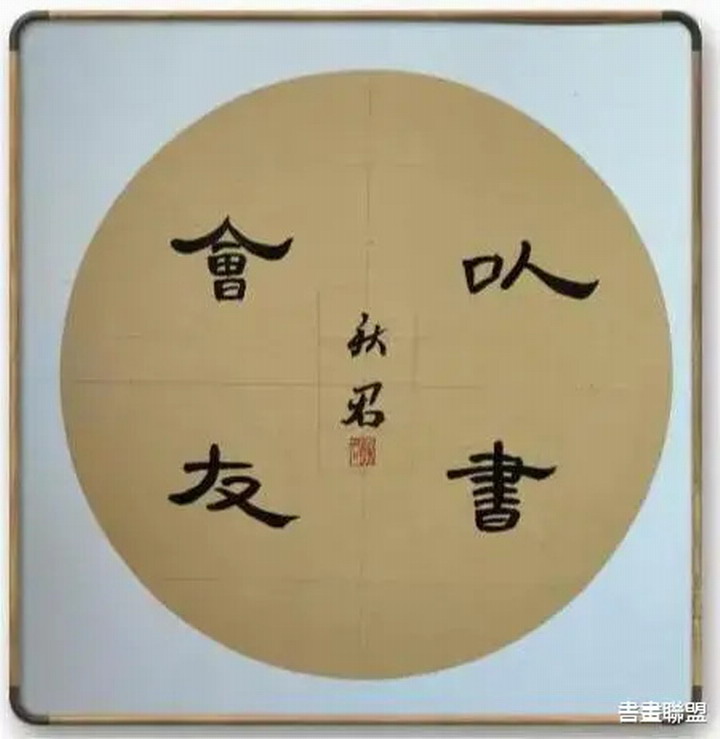 以書
會友
秋君
書畫聯盟